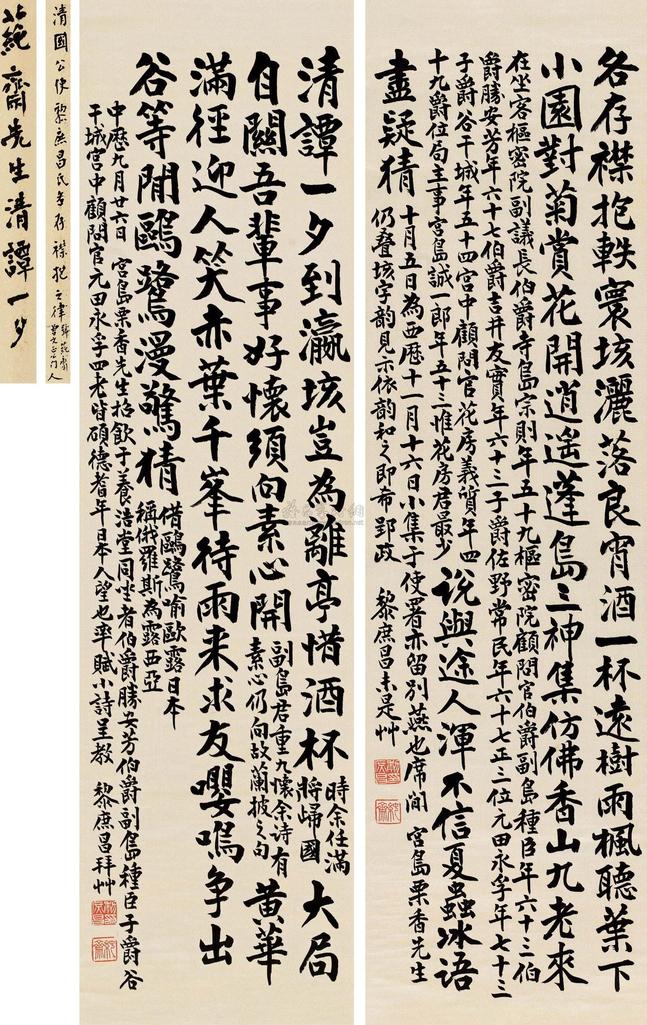 各存襟抱軼寰垓灑落良宵酒一杯遠樹雨楓聽葉下
小園對菊賞花開逍遙蓬島三神集仿佛香山九老來
在坐客樞密院副議長伯爵寺島宗則年五十九樞密院顧問官伯爵副島種臣年六十三伯
爵勝安芳年六十七伯爵吉井友實年六十三子爵佐野常民年六十七正三位元田永孚年七十三
子爵谷干城年五十四宮中顧問官花房義質年四
十九爵位局主事宮島誠一郎年五十三惟花房君最少
說與途人渾不信夏蟲冰語
盡疑猜
十月五日為西歷十一月十六日小集于使署亦留別燕也席間 宮島栗香先生
仍疊垓字韵見示依韵和之即希 郢政 黎庶昌未是艸
清譚一夕到瀛垓豈為離亭惜酒杯
時余任滿
將歸國
大局
自關吾輩事好懷須向素心開
副島君重九懷余詩有
素心仍向故蘭披之句
黃華
滿徑迎人笑赤葉千峯待雨来求友嚶鳴争出
谷等閒鷗鷺漫驚猜
借鷗鷺喻歐露日本
稱俄羅斯為露西亞
中歷九月廿六日 宮島栗香先生招飲于養浩堂同坐者伯爵勝安芳伯爵副島種臣子爵谷
干城宮中顧問官元田永孚四老皆碩德耆年日本人望也率賦小詩呈教 黎庶昌拜艸
清國公使黎庶昌氏各存襟抱之律
蒓齋先生清譚一夕